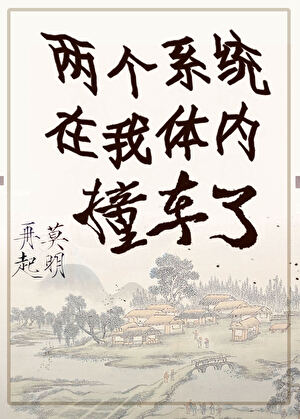 两个系统
在我体内
撞车了
莫明
再起